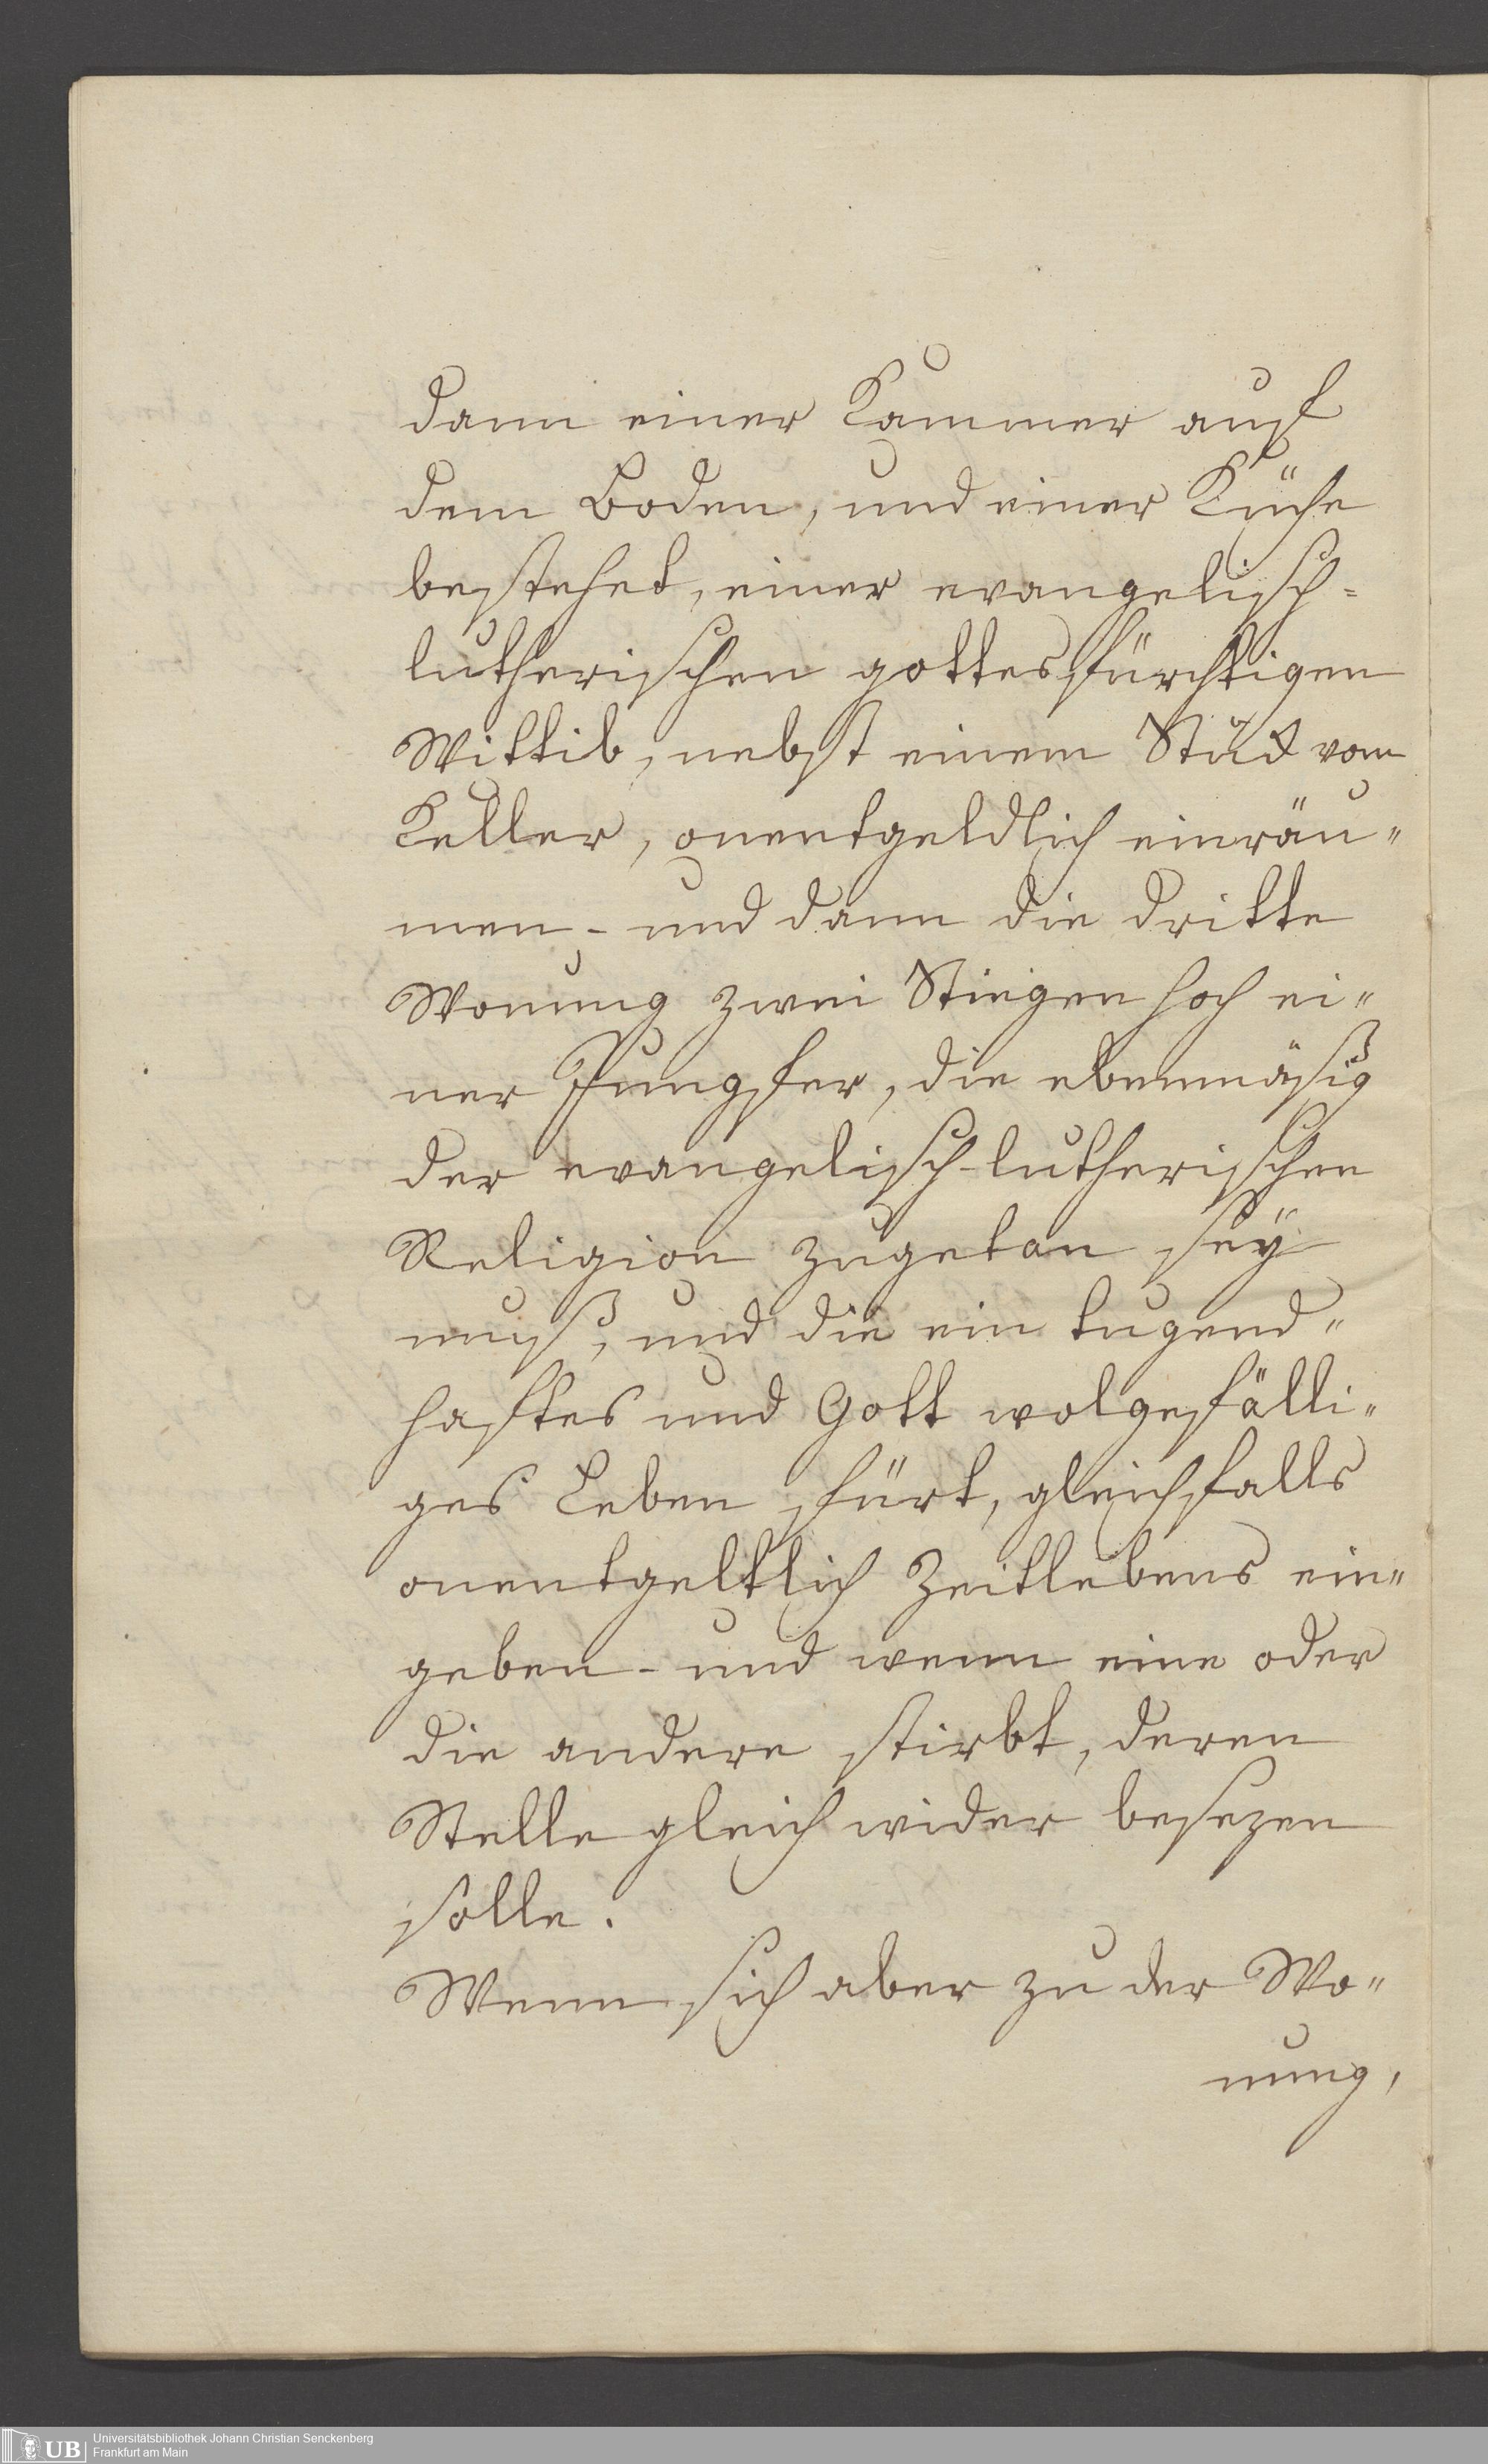 dann einer Kammer auf
dem Boden, und einer Küche
bestehet, einer evangelisch-
lutherischen gottesfürchtigen
Wittib, nebst einem Stück vom
Keller, onentgeldlich einräu-
men - und dann die dritte
Wonung zwei Stiegen hoch ei-
ner Jungfer, die ebenmäsig
der evangelisch-lutherischen
Religion zugetan sey
muß, und die ein tugend-
haftes und Gott wolgefälli-
ges Leben fürt, gleichfalls
onentgeltlich Zeitlebens ein-
geben - und wenn eine oder
die andere stirbt, deren
Stelle gleich wider besezen
solle.
Wenn sich aber zu der Wo-
nung,
UB
Universitätsbibliothek Johann Christian Senckenberg
Frankfurt am Main